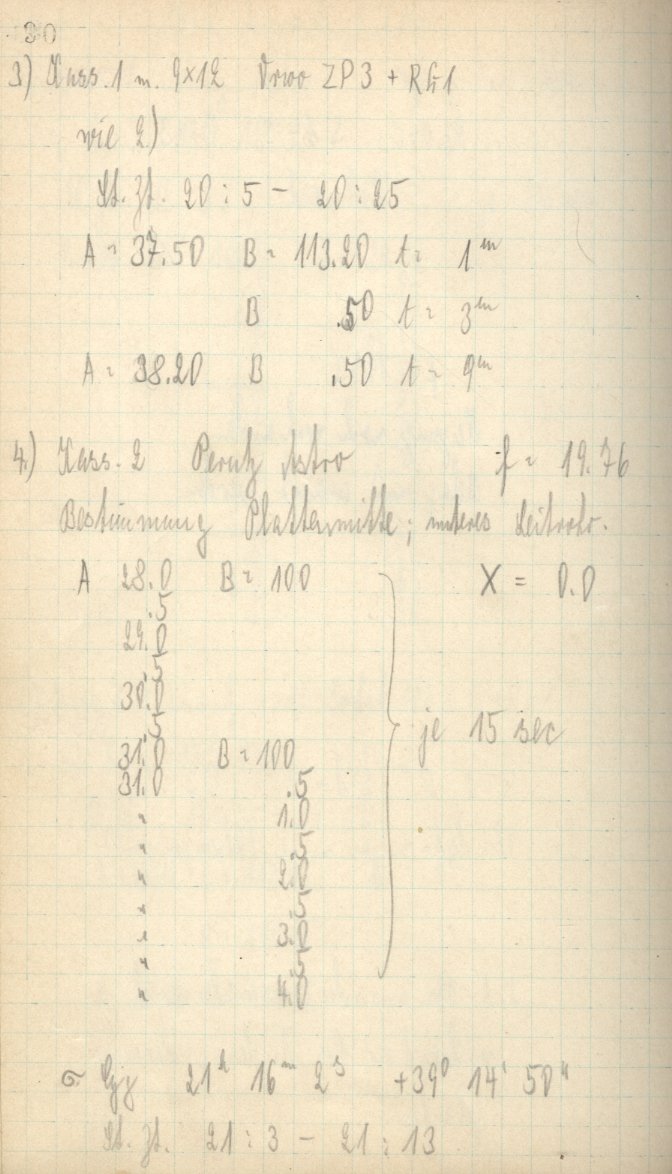 30
3) Kass. 1 m. 9x12 ZP3 + RG1
wie 2)
St. Zt. 20 : 5 - 20 : 25
A = 37.50 B = 113.20 t = 1 m
B .50 t = 3 m
A = 38.20 B .50 t = 9 m
4.) Kass. 2 Perutz Astro f = 19.76
Bestimmung Plattenmitte; unteres Leitrohr.
A 28.0 B = 100 X = 0.0
.5
29.0
.5
30.0
.5
31.0 B = 100
31.0 .5
" 1.0
" .5
" 2.0
" .5
" 3.0
" .5
" 4.0
je 15 sec
σ Cyg 21h 16m 2s +39° 14' 50"
St. Zt. 21 : 3 - 21 : 13